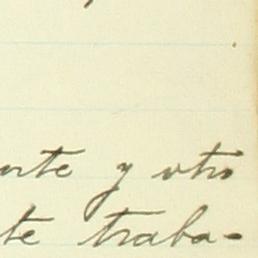 rte y otro
te traba-